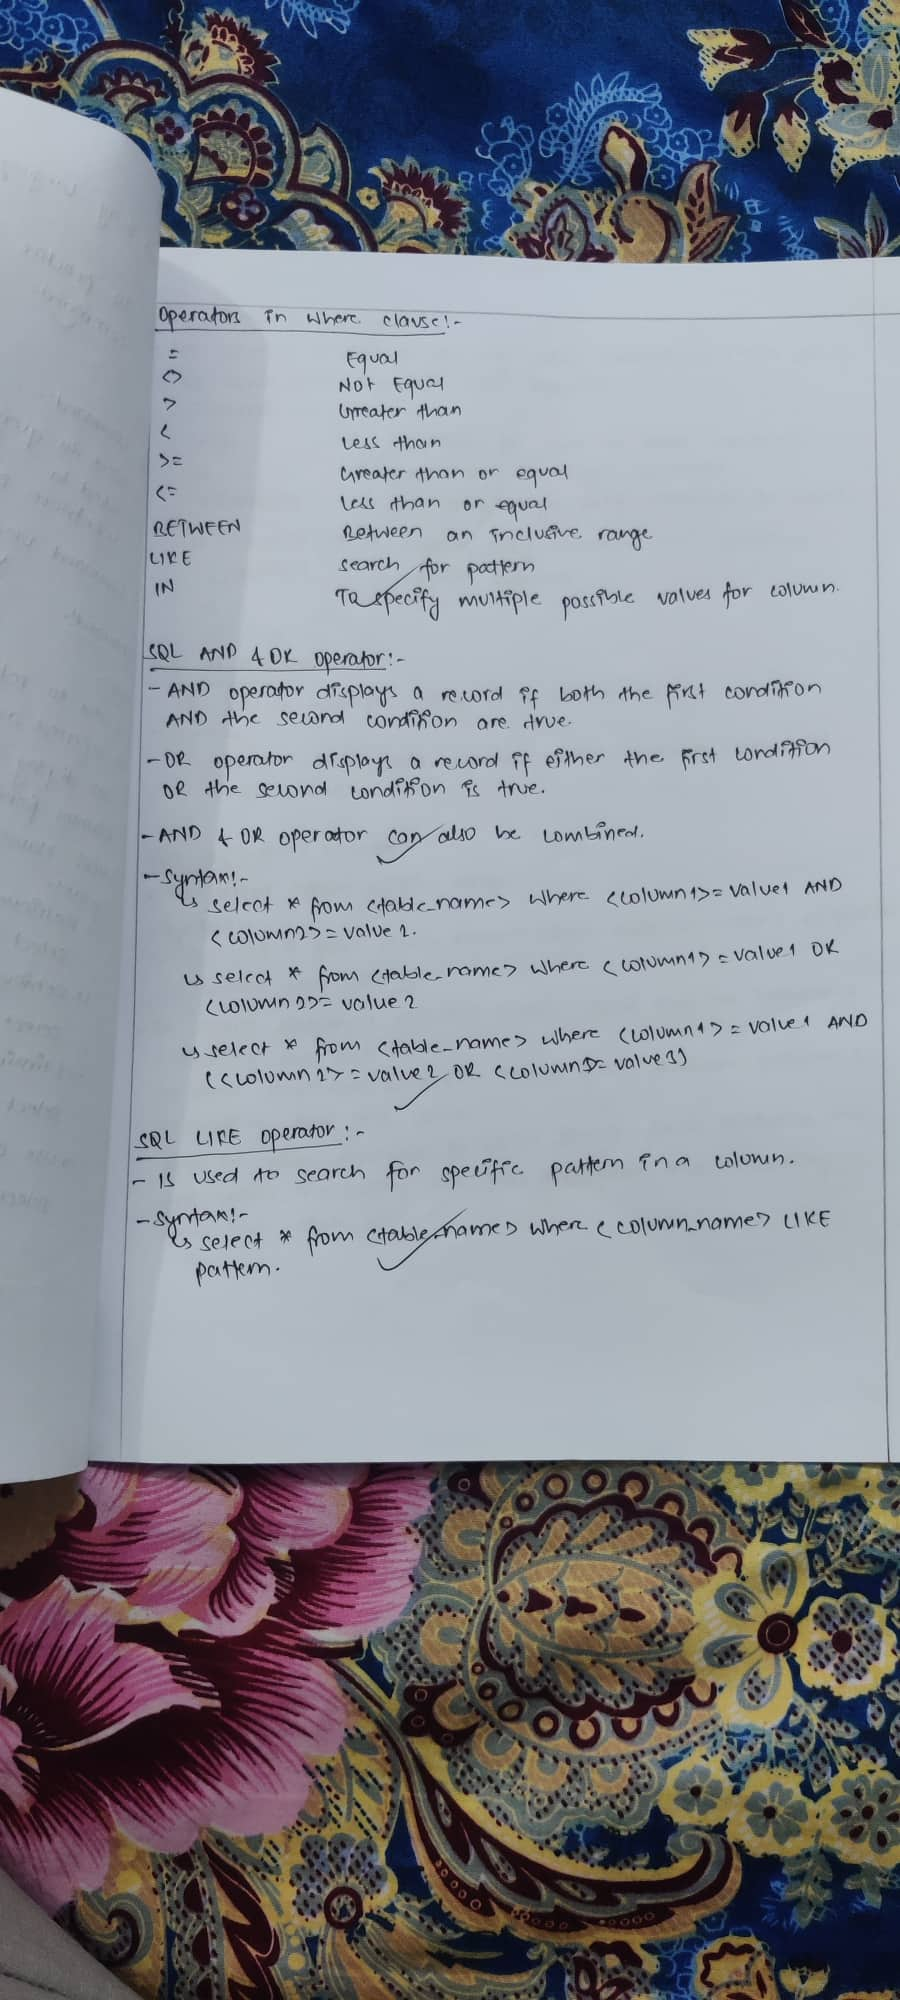 Operators in where clause:-
= Equal
<> Not Equal
> Greater than
< Less than
>= Greater than or equal
<= Less than or equal
BETWEEN Between an inclusive range
LIKE search for pattern
IN To specify multiple possible values for column.
SQL AND & OR operator:-
- AND operator displays a record if both the first condition
AND the second condition are true.
- OR operator displays a record if either the first condition
OR the second condition is true.
- AND & OR operator can also be combined.
- Syntax:-
↳ select * from <table_name> where <column1> = value1 AND
<column2> = value 2.
↳ select * from <table_name> where <column1> = value1 OR
<column2> = value 2
↳ select * from <table_name> where <column1> = value1 AND
(<column2> = value2 OR <column3> = value3)
SQL LIKE operator:-
- Is used to search for specific pattern in a column.
- Syntax:-
↳ select * from <table_name> where <column_name> LIKE
pattern.